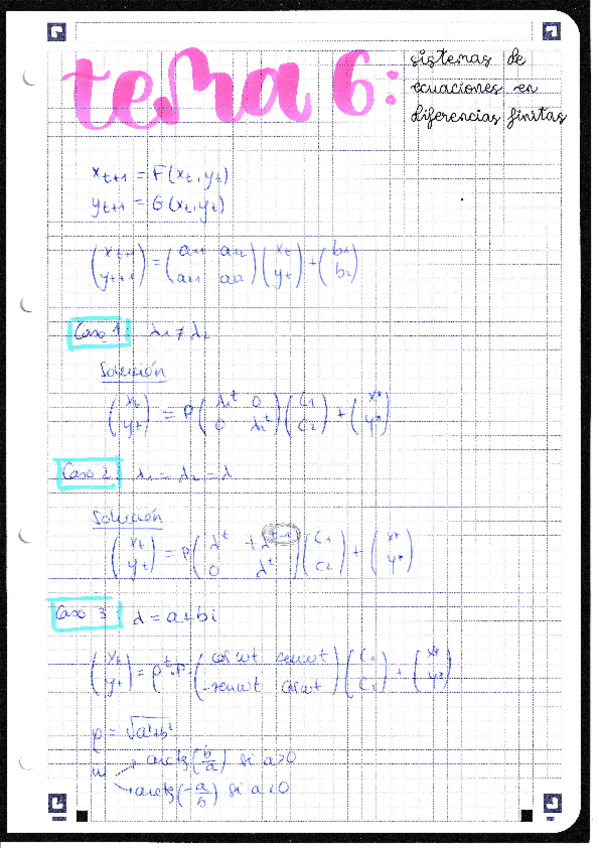 tema 6: sistemas de
ecuaciones en
diferencias finitas
x_{t+1} = F(x_t, y_t)
y_{t+1} = G(x_t, y_t)
(x_{t+1} y_{t+1}) = (a_{11} a_{12} a_{21} a_{22}) (x_t y_t) + (b_1 b_2)
Caso 1: λ_1 ≠ λ_2
Solución
(x_t y_t) = P (λ_1^t 0 0 λ_2^t) (C_1 C_2) + (x* y*)
Caso 2: λ_1 = λ_2 = λ
Solución
(x_t y_t) = P (λ^t tλ^{t-1} 0 λ^t) (C_1 C_2) + (x* y*)
Caso 3: λ = a ± bi
(x_t y_t) = ρ^t · P · (cos wt sen wt -sen wt cos wt) (C_1 C_2) + (x* y*)
ρ = √a²+b²
w → arctg (b/a) si a>0
→ arctg (-a/b) si a<0